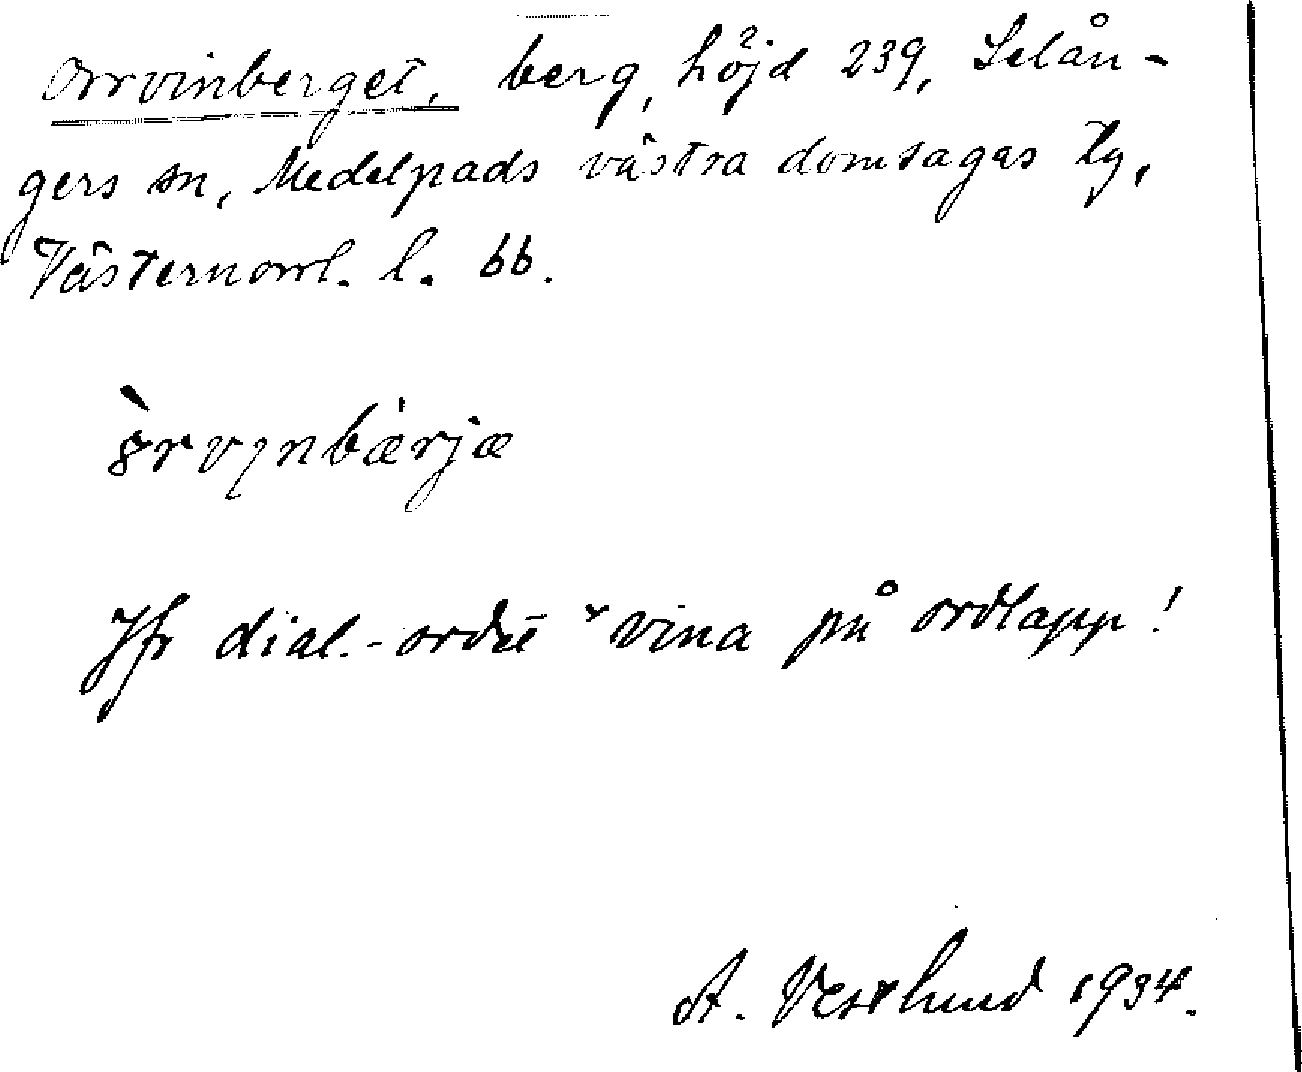 Orrvinberget, berg, höjd 239, Selån-
gers sn, Medelpads västra domsagas tg,
Västernorrl. l. 66.
òrvɩnbærjæ
Jfr dial.-ordet *vina på ordlapp!
A. Vestlund 1934.